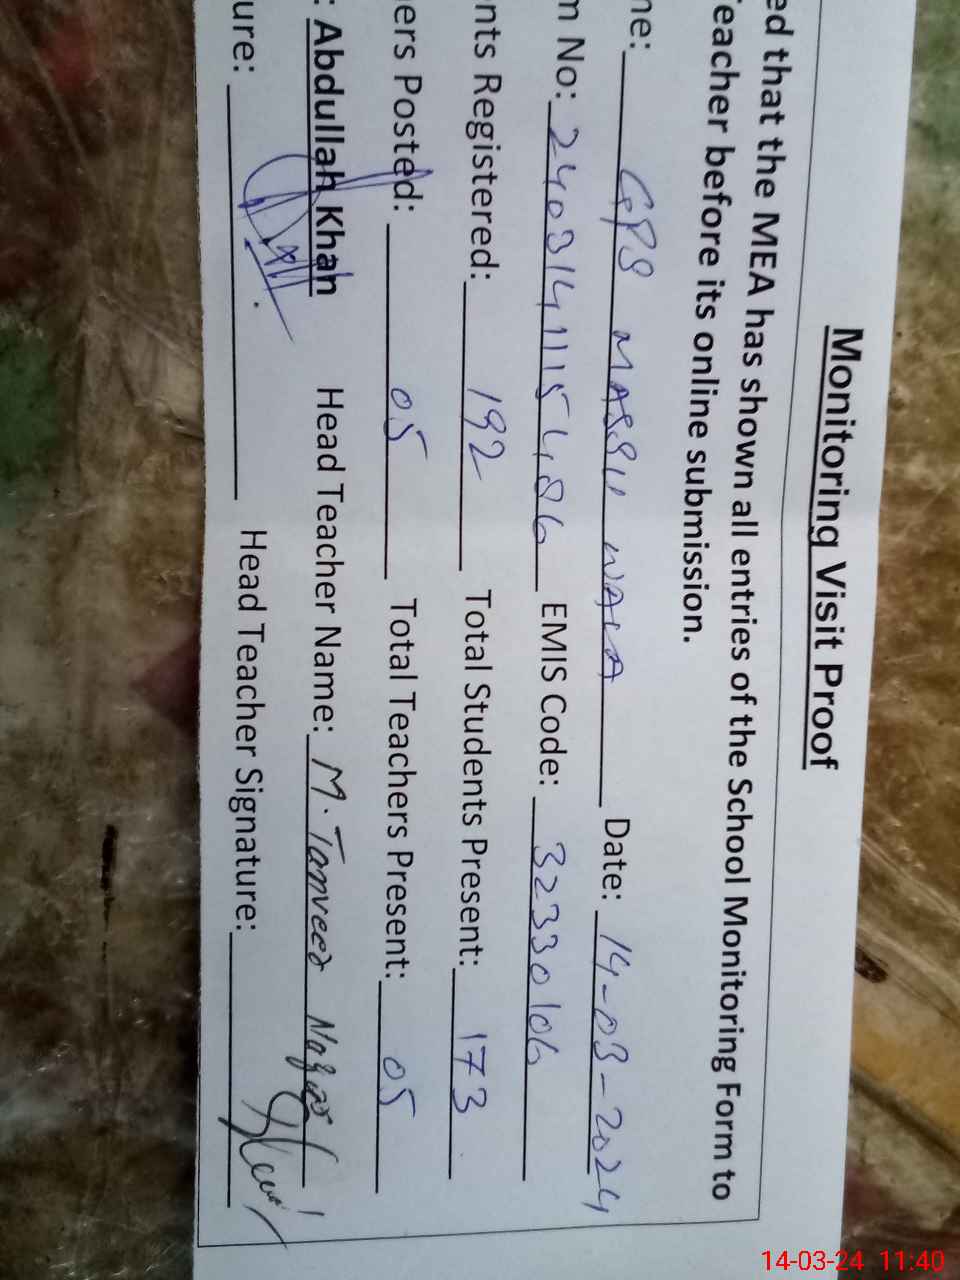 Monitoring Visit Proof
ed that the MEA has shown all entries of the School Monitoring Form to
Teacher before its online submission.
ne: GPS MASSU WALA Date: 14-03-2024
m No: 2403141115486 EMIS Code: 32330106
nts Registered: 192 Total Students Present: 173
ers Posted: 05 Total Teachers Present: 05
: Abdullah Khan Head Teacher Name: M. Tanveer
ure: Head Teacher Signature:
14-03-24 11:40